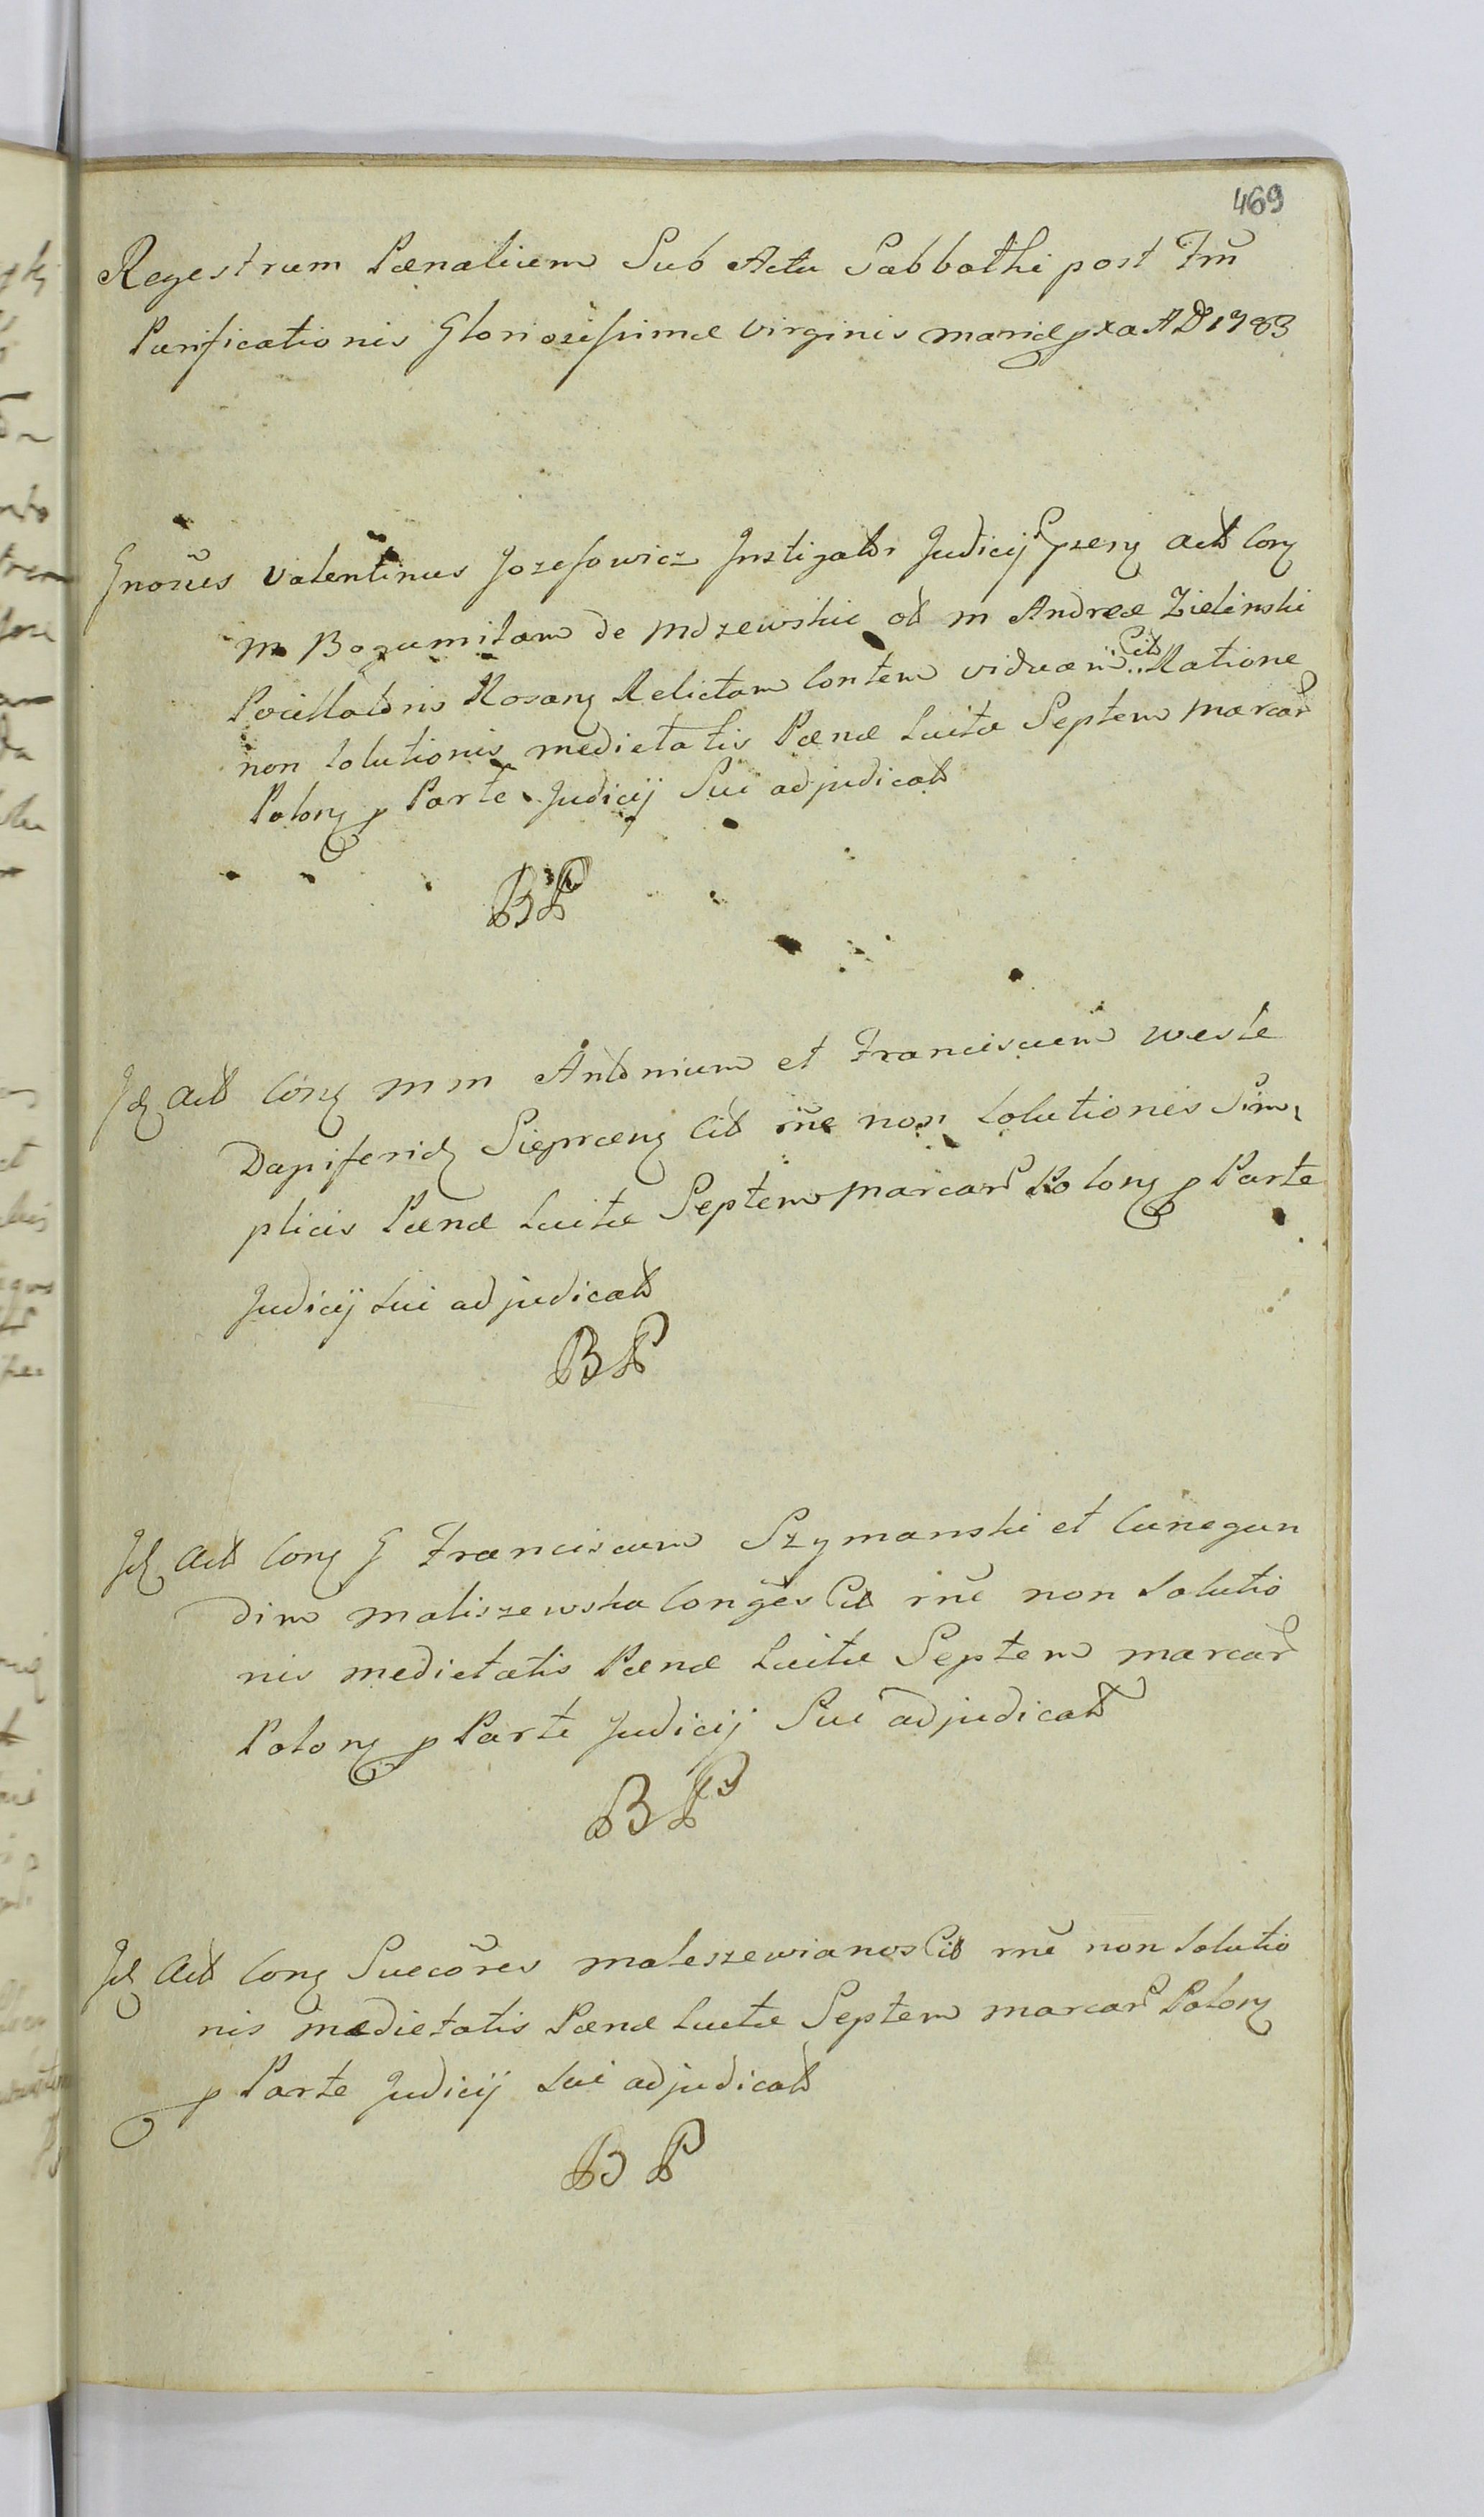 469
Regestrum Pænalium Sub Actu Sabbathi post Fm̃
Purificationis Gloriosissimæ Virginis Mariæ pxa AD 1783
Gnosus Valentinus Jozefowicz Instigator Judicij Actor Con
M Bogumilam de Mdzewskie M Andreæ Zielinski
Pocillatoris Rosan Relictam Contem viduam Cit Ratione
non Solutionis medietatis Pænæ Luitæ Septem marcar
Polon p Parte Judicij Sui adjudicat
BP
Id Act Con M M Antonium et Franciscum Wesle
Dapiferid Siepraen Cit rñe non Solutionis Sim
plicis Pænæ Luitæ Septem marcar Polon p Parte
Judicij Sui adjudicat
BP
Id Act Con G Franciscum Szymanski et Cunegun
dim Maliszewska Conges Cit rñe non Solutio
nis medietatis Pænæ Luitæ Septem marcar
Polon p Parte Judicij Sui adjudicat
BP
Id Act Con Succores Maleszewianos Cit rñe non Solutio
nis medietatis Pænæ Luitæ Septem marcar Polon
p Parte Judicij Sui adjudicat
BP